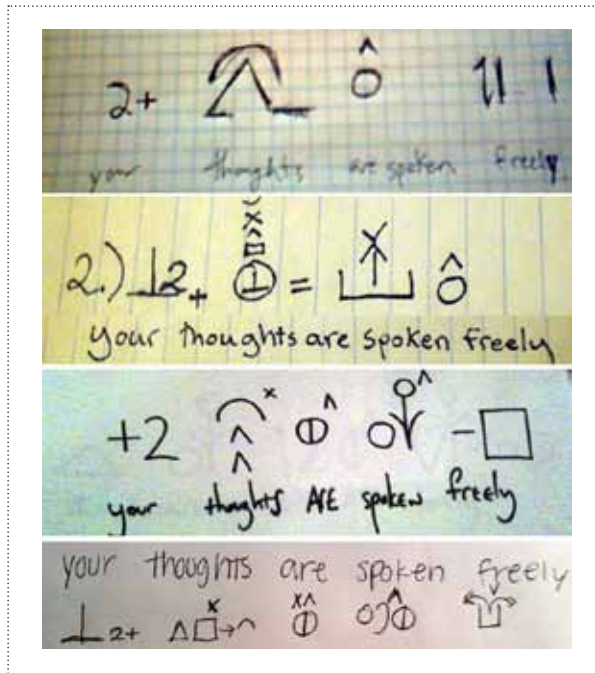 2+
your thoughts are spoken freely
2.) 2+ =
your thoughts are spoken freely
+2
your thoughts ARE spoken freely
your thoughts are spoken freely
2+